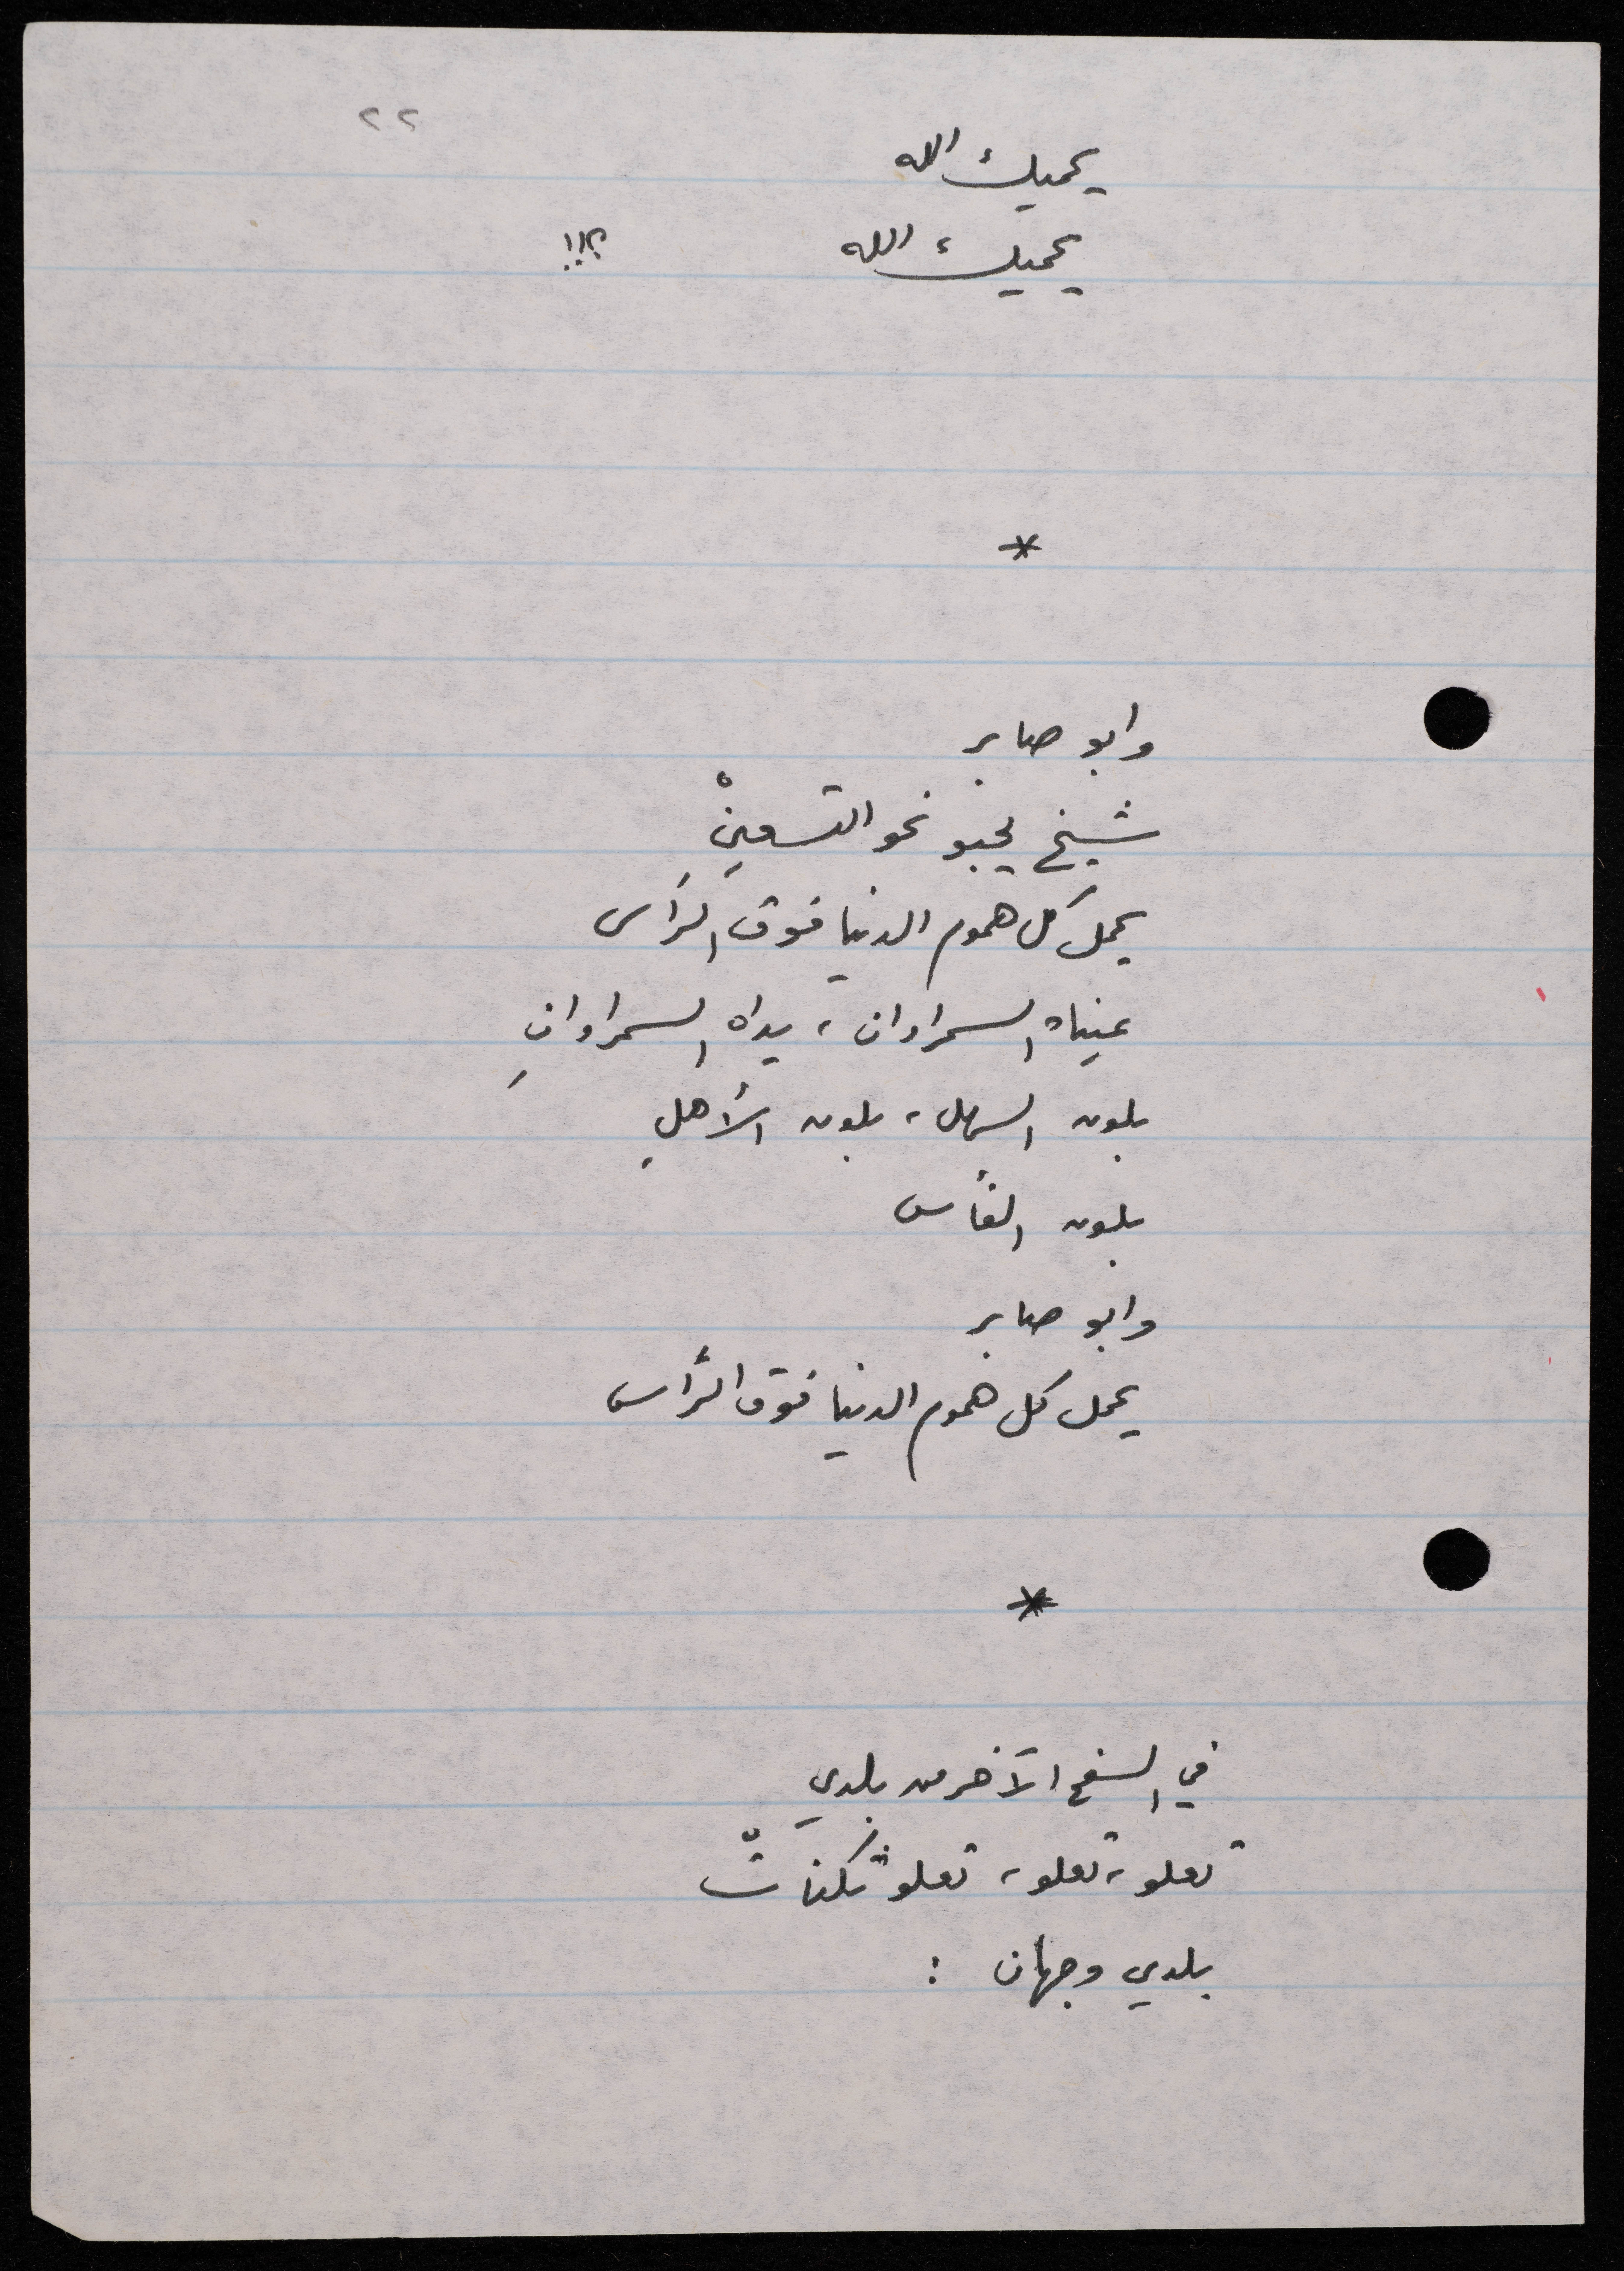 ٢٢
يحميك الله
يحميك الله ؟!!
*
وابو صابر
شيخ يحبو نحو التسعينْ
يحمل كل هموم الدنيا فوق الرأس
عيناه السمراوان ، يداه السمراوانِ
بلون السهل ، بلون الأهلِ
بلون الفأس
وابو صابر
يحمل كل هموم الدنيا فوق الرأس
*
في السفح الآخر من بلدي
تعلو ، تعلو ، تعلو ثكناتْ
بلدي وجهان :